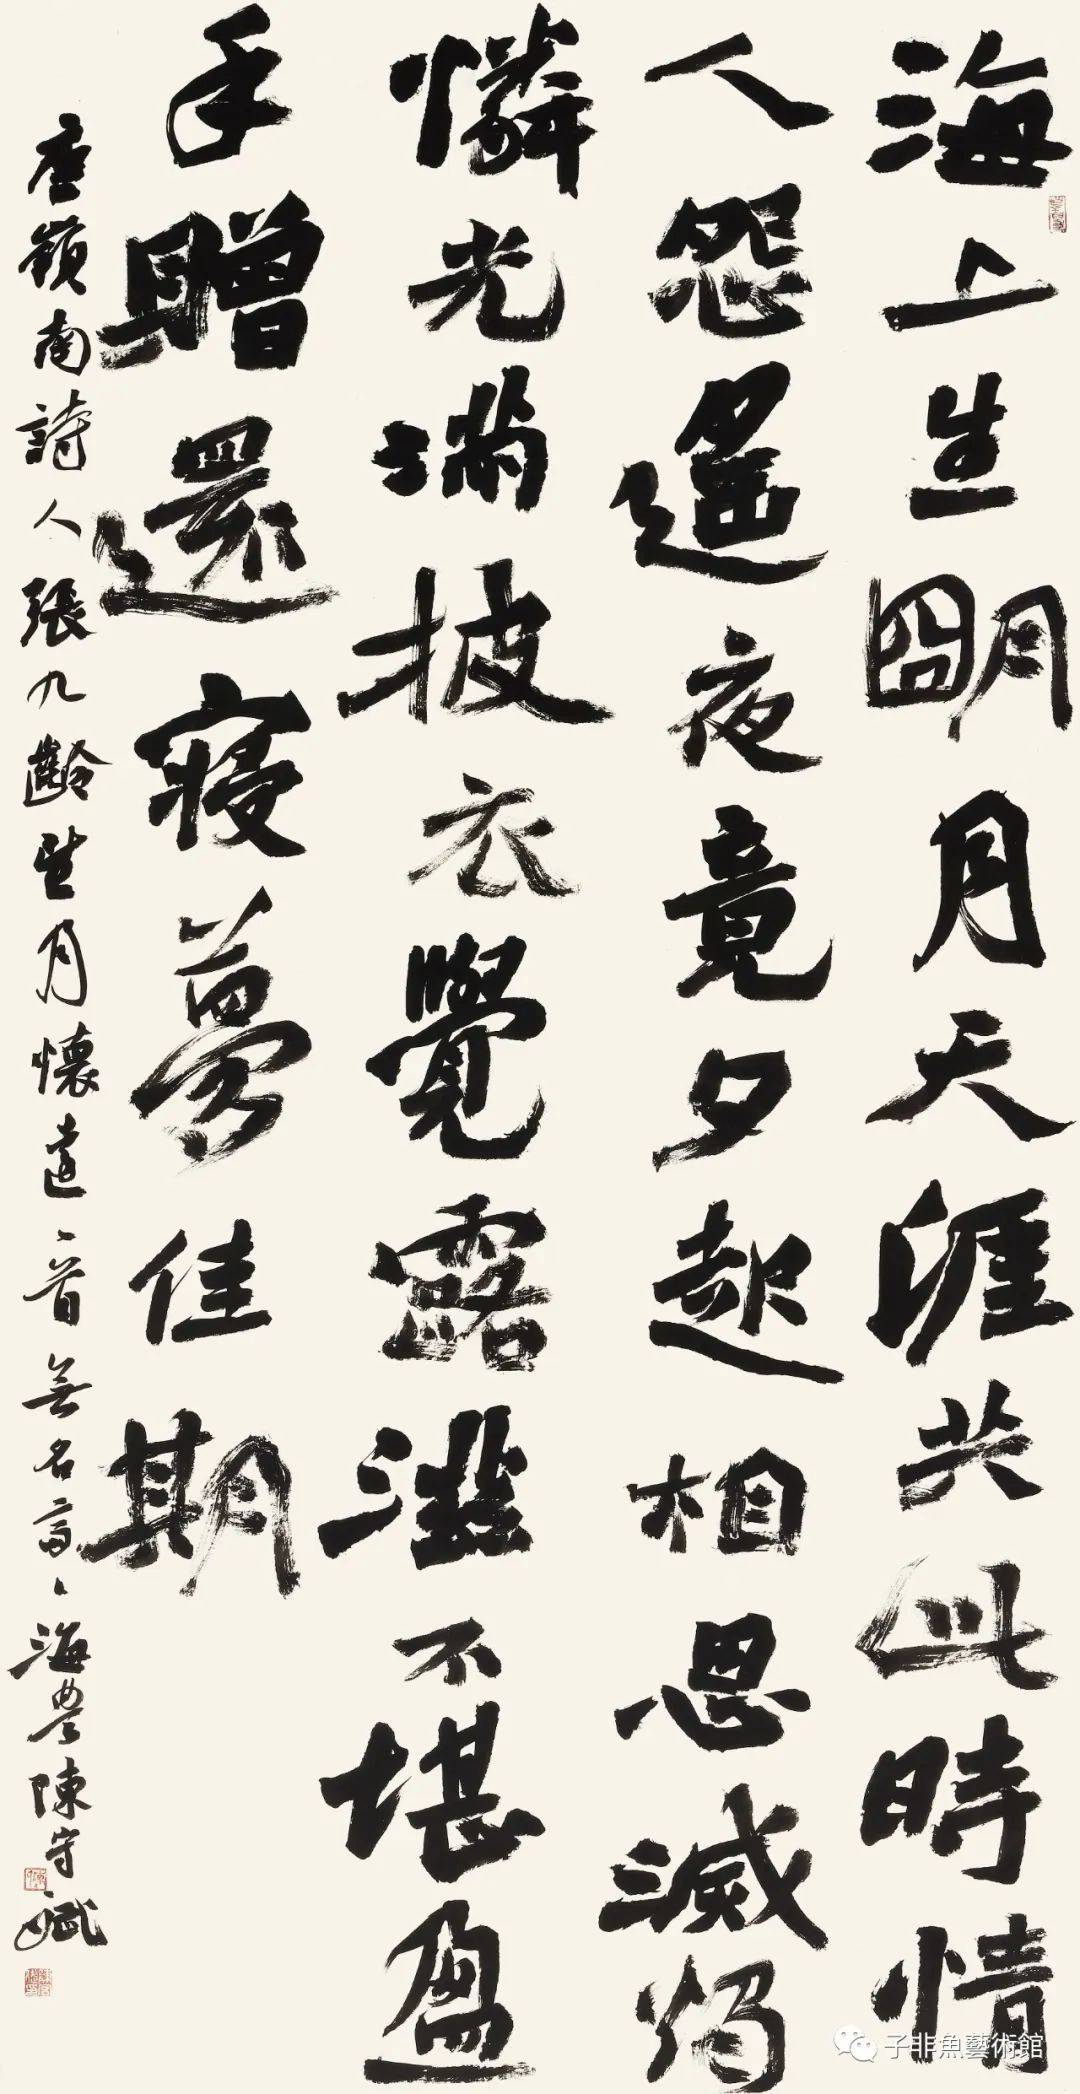 海上生明月天涯共此時情
人怨遙夜竟夕起相思滅燭
憐光滿披衣覺露滋不堪盈
手贈還寢夢佳期
唐嶺南詩人張九齡望月懷遠一首無名齋海豐陳守斌
子非魚藝術館